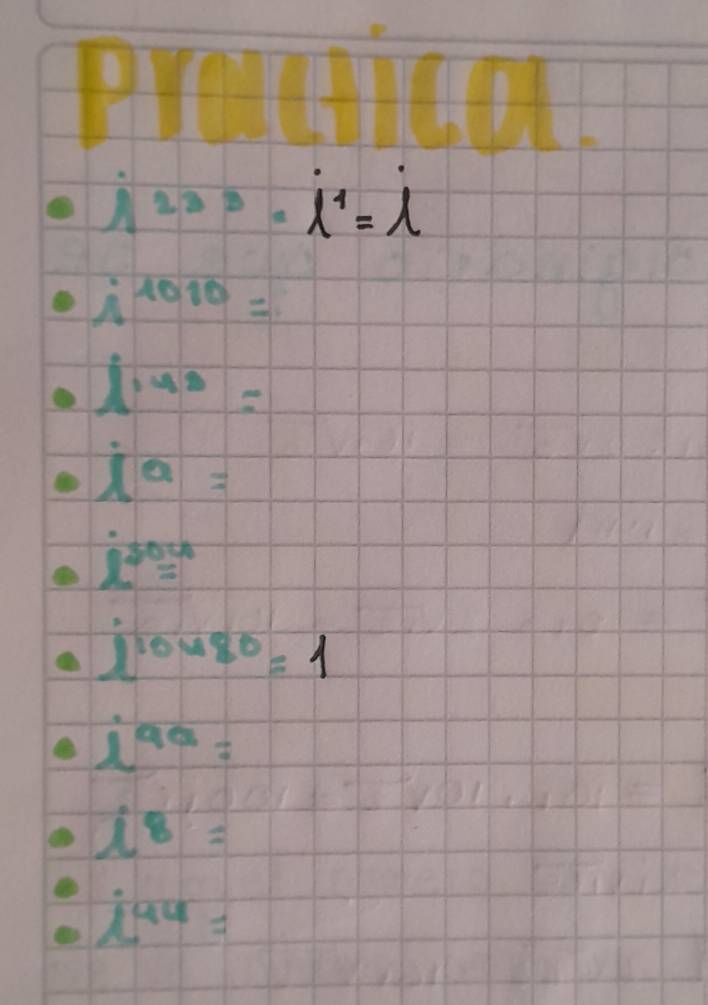 Practica.
• i²³³ = i¹ = i
• i¹⁰¹⁰ =
• i¹⁴³ =
• i⁹ =
• i³⁰⁴ =
• i¹⁰⁴⁸⁰ = 1
• i⁹⁹ =
• i⁸ =
•
• i⁴⁴ =